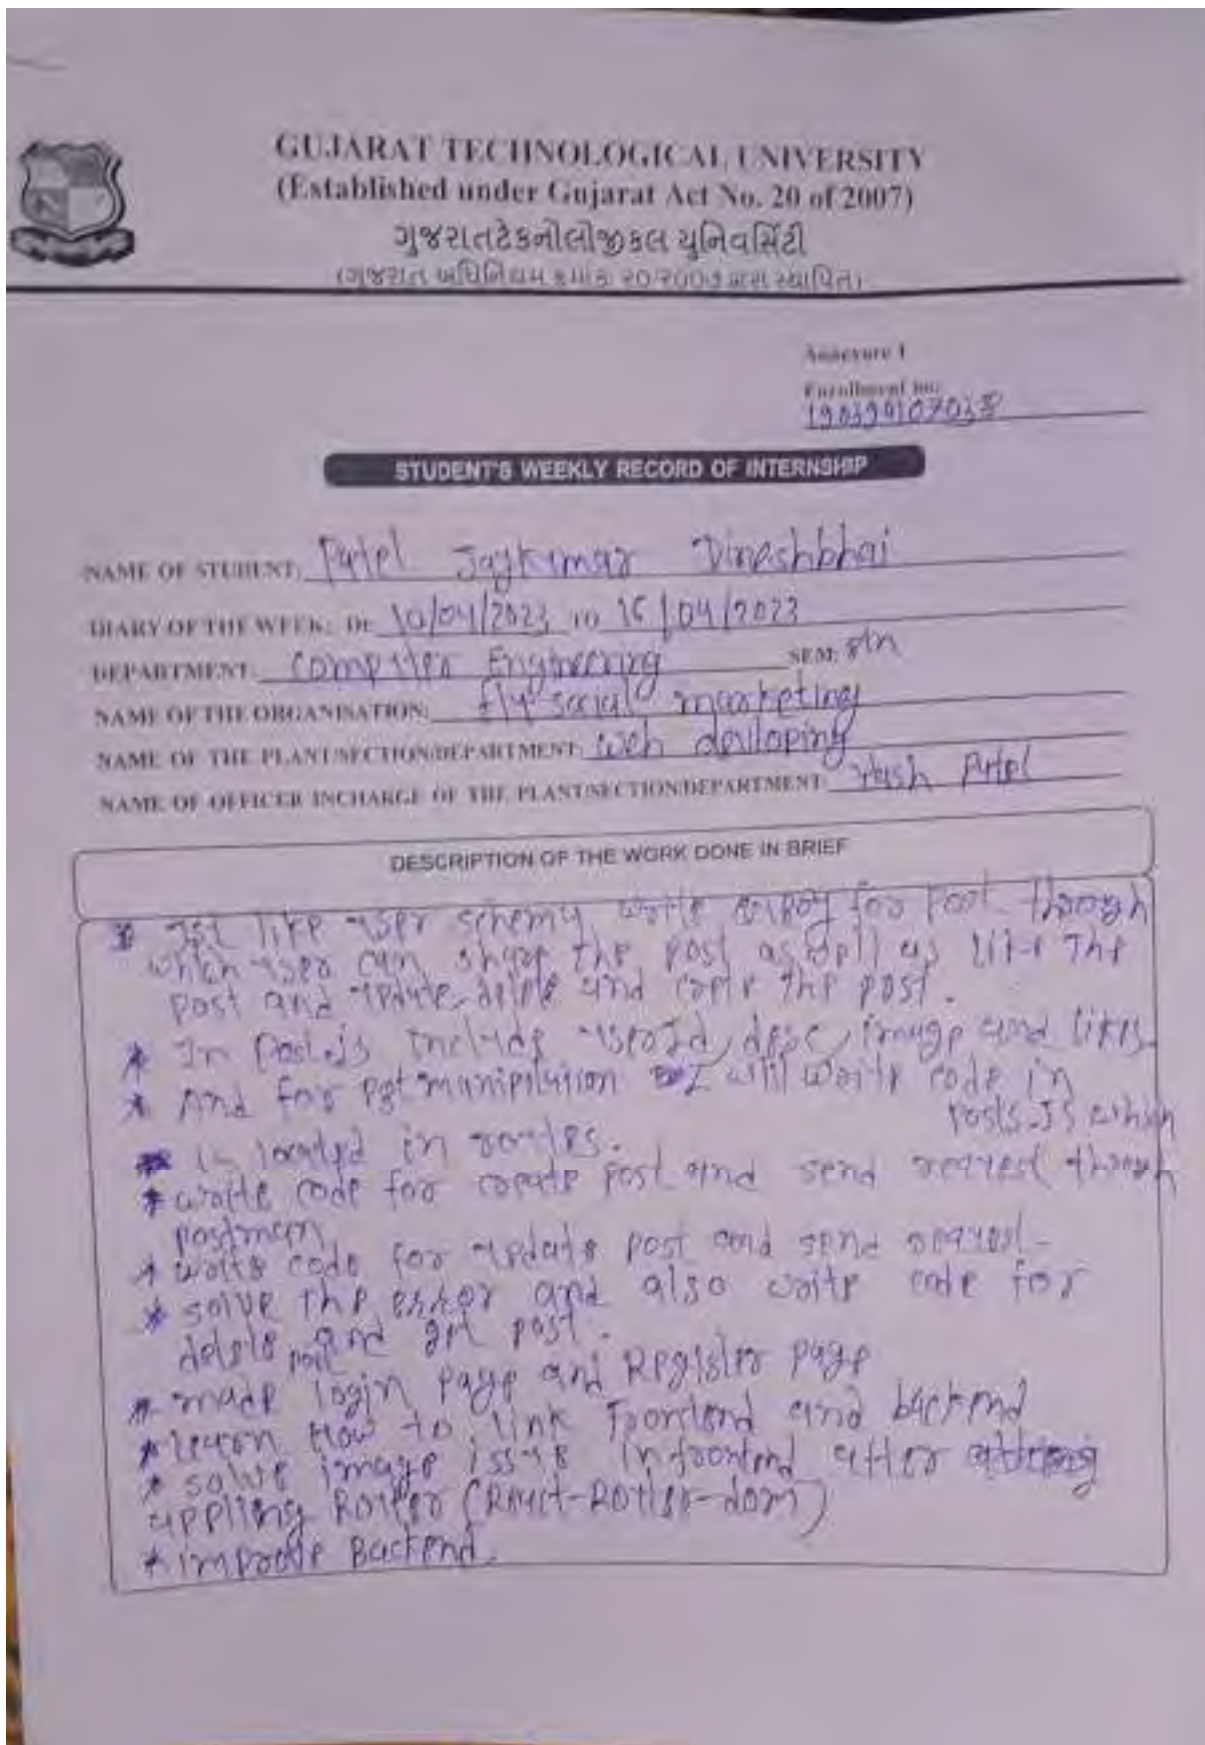 GUJARAT TECHNOLOGICAL UNIVERSITY
(Established under Gujarat Act No. 20 of 2007)
ગુજરાતટેકનોલોજીકલ યુનિવર્સિટી
(ગુજરાત અધિનિયમ ક્રમાંક: ૨૦/૨૦૦૭ દ્વારા સ્થાપિત)
Annexure I
Enrollment no:
STUDENT'S WEEKLY RECORD OF INTERNSHIP
NAME OF STUDENT: Patel Jaykumar Dineshbhai
DIARY OF THE WEEK: Dt 10/04/2023 TO 16/04/2023
DEPARTMENT: Computer Engineering SEM: 8th
NAME OF THE ORGANISATION: fly social marketing
NAME OF THE PLANT/SECTION/DEPARTMENT: web
NAME OF OFFICER INCHARGE OF THE PLANT/SECTION/DEPARTMENT: Patel
DESCRIPTION OF THE WORK DONE IN BRIEF
* like user write for Post through
which user can share the post as well as like The
post and update delete and the post.
* In Post.js include userId, desc, image and likes
* And for I will write code in
Posts.JS which
is located in routes.
* write code for create post and send request through
postman
* write code for update post and send request-
* solve the error and also write code for
delete post and get post.
* made login page and Register page
* learn How to link Frontend and backend
* solve image issue in frontend after
Router (React-Router-dom)
* improve Backend.